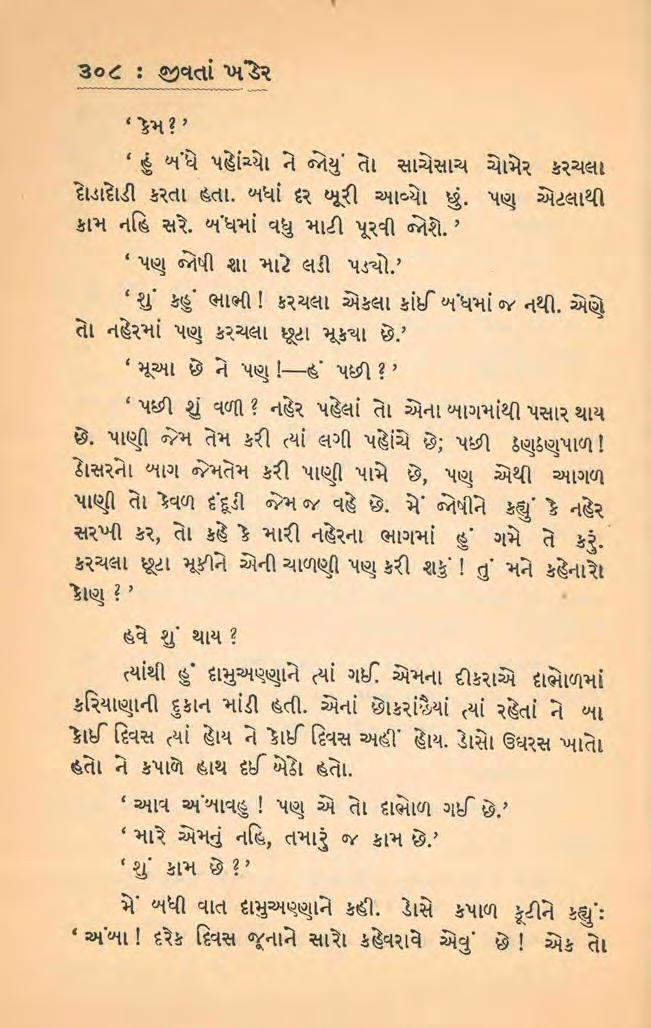 ૩૦૮ : જીવતાં ખંડેર
‘ કેમ ? ’
‘ હું બંધે પહોંચ્યો ને જોયું તો સાચેસાચ ચોમેર કરચલા
દોડાદોડી કરતા હતા. બધાં દર બૂરી આવ્યો છું. પણ એટલાથી
કામ નહિ સરે. બંધમાં વધુ માટી પૂરવી જોશે. ’
‘ પણ જોષી શા માટે લડી પડ્યો.’
‘ શું કહું ભાભી ! કરચલા એકલા કાંઈ બંધમાં જ નથી. એણે
તો નહેરમાં પણ કરચલા છૂટા મૂક્યા છે.’
‘ મૂઆ છે ને પણ !—હં પછી ? ’
‘ પછી શું વળી ? નહેર પહેલાં તો એના બાગમાંથી પસાર થાય
છે. પાણી જેમ તેમ કરી ત્યાં લગી પહોંચે છે; પછી ઠણઠણપાળ !
ઠોસરનો બાગ જેમતેમ કરી પાણી પામે છે, પણ એથી આગળ
પાણી તો કેવળ દંદૂડી જેમ જ વહે છે. મેં જોષીને કહ્યું કે નહેર
સરખી કર, તો કહે કે મારી નહેરના ભાગમાં હું ગમે તે કરું.
કરચલા છૂટા મૂકીને એની ચાળણી પણ કરી શકું ! તું મને કહેનારો
કોણ ? ’
હવે શું થાય ?
ત્યાંથી હું દામુઅણ્ણાને ત્યાં ગઈ. એમના દીકરાએ દાભોળમાં
કરિયાણાની દુકાન માંડી હતી. એનાં છોકરાંછૈયાં ત્યાં રહેતાં ને બા
કોઈ દિવસ ત્યાં હોય ને કોઈ દિવસ અહીં હોય. ડોસો ઉધરસ ખાતો
હતો ને કપાળે હાથ દઈ બેઠો હતો.
‘ આવ અંબાવહુ ! પણ એ તો દાભોળ ગઈ છે.’
‘ મારે એમનું નહિ, તમારું જ કામ છે.’
‘ શું કામ છે ? ’
મેં બધી વાત દામુઅણ્ણાને કહી. ડોસે કપાળ કૂટીને કહ્યું :
‘ અંબા ! દરેક દિવસ જૂનાને સારો કહેવરાવે એવું છે ! એક તો